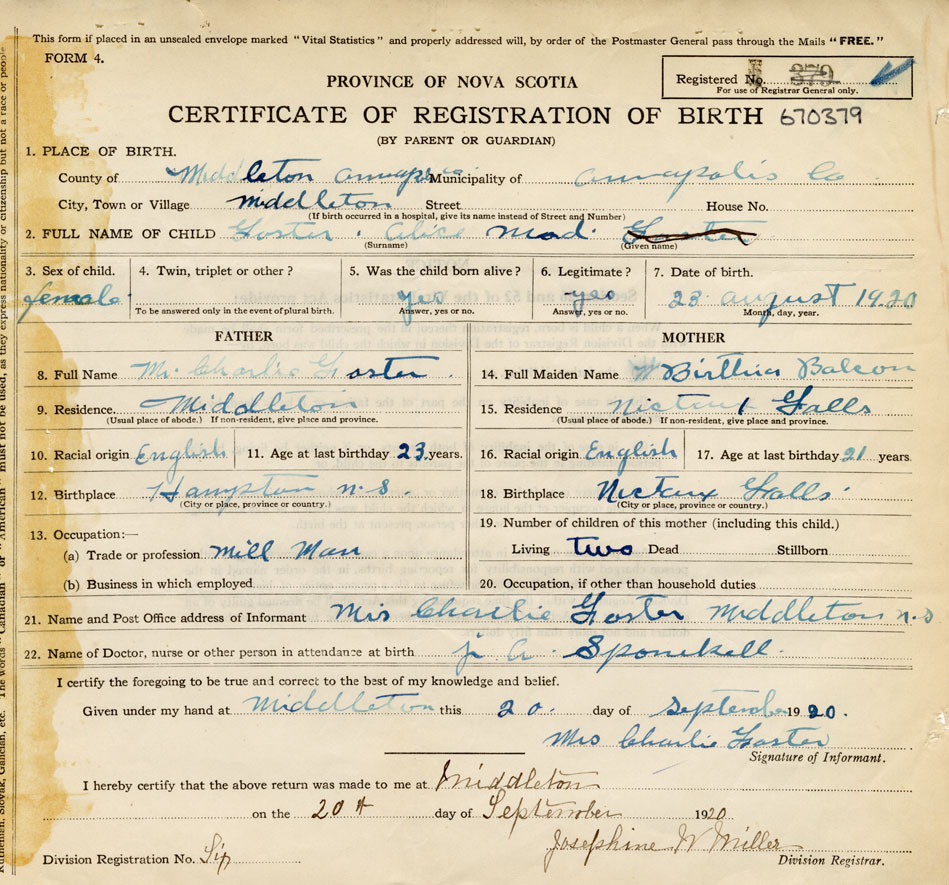 This form if placed in an unsealed envelope marked "Vital Statistics" and properly addressed will, by order of the Postmaster General pass through the Mails "FREE."
FORM 4.
Registered No. 379
For use of Registrar General only.
PROVINCE OF NOVA SCOTIA
CERTIFICATE OF REGISTRATION OF BIRTH 670379
(BY PARENT OR GUARDIAN)
1. PLACE OF BIRTH.
County of Middleton Annapolis Co Municipality of Annapolis Co
City, Town or Village middleton Street House No.
(If birth occurred in a hospital, give its name instead of Street and Number)
2. FULL NAME OF CHILD Foster . Alice Mad. Foster
(Surname) (Given name)
3. Sex of child. 4. Twin, triplet or other? 5. Was the child born alive? 6. Legitimate? 7. Date of birth.
female yes yes 23 august 1920
To be answered only in the event of plural birth. Answer, yes or no. Answer, yes or no. Month, day, year.
FATHER MOTHER
8. Full Name Mr. Charlie Foster . 14. Full Maiden Name Birthia Balcon
9. Residence. Middleton 15. Residence Nictaux Falls
(Usual place of abode.) If non-resident, give place and province. (Usual place of abode.) If non-resident, give place and province.
10. Racial origin English 11. Age at last birthday 23 years. 16. Racial origin English 17. Age at last birthday 21 years.
12. Birthplace Hampton n.s. 18. Birthplace Nictaux Falls
(City or place, province or country.) (City or place, province or country.)
13. Occupation:— 19. Number of children of this mother (including this child.)
(a) Trade or profession mill Man Living two Dead Stillborn
(b) Business in which employed 20. Occupation, if other than household duties
21. Name and Post Office address of Informant Mrs Charlie Foster Middleton n.s
22. Name of Doctor, nurse or other person in attendance at birth A. Sponikell.
I certify the foregoing to be true and correct to the best of my knowledge and belief.
Given under my hand at Middleton this 20. day of September 1920.
Mrs Charlie Foster
Signature of Informant.
I hereby certify that the above return was made to me at Middleton
on the 20th day of September 1920
Josephine W Miller
Division Registration No. Division Registrar.